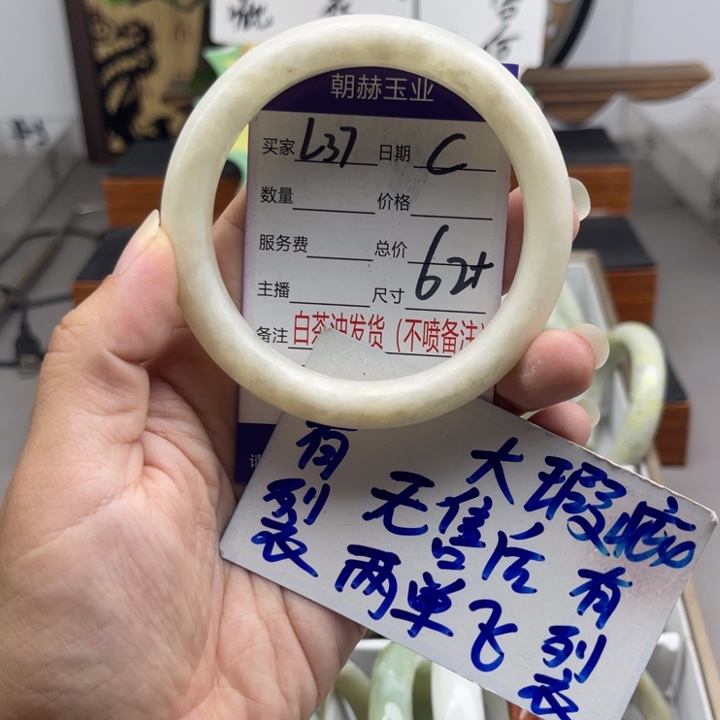 朝赫玉业
买家 L37 日期 C
数量 价格
服务费 总价
主播 尺寸 62+
备注 白茶油发货(不喷备注)
有列表
大瑕疵
无售后
两单飞
有列表